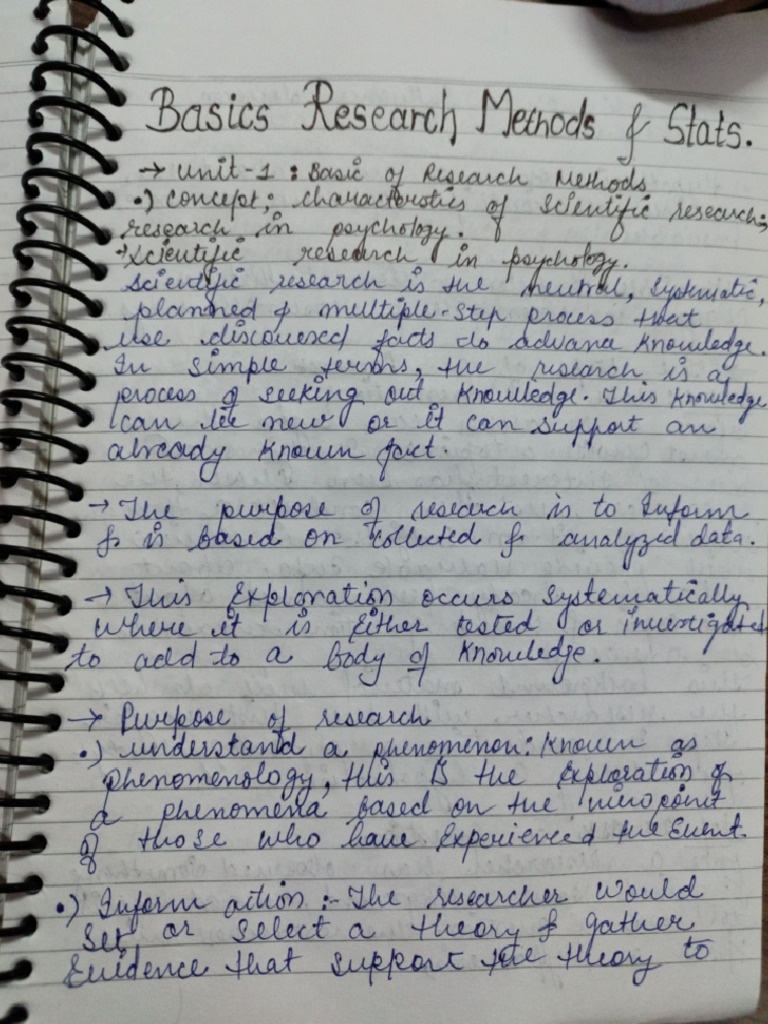 Basics Research Methods & Stats.
→ unit-1 : Basic of Research Methods
•) concept; characteristics of scientific research;
research in psychology.
→ scientific research in psychology.
Scientific research is the neutral, systematic,
planned & multiple-step process that
use discovered facts to advance knowledge.
In simple terms, the research is a
process of seeking out knowledge. This knowledge
can be new or it can support an
already known fact.
→ The purpose of research is to Inform
& is based on collected & analyzed data.
→ This Exploration occurs systematically
where it is Either tested or investigated
to add to a body of knowledge.
→ Purpose of research
•) understand a phenomenon: known as
phenomenology, this is the Exploration of
a phenomena based on the viewpoint
of those who have Experienced the Event.
•) Inform action :- The researcher would
Set or select a theory & gather
Evidence that support the theory to